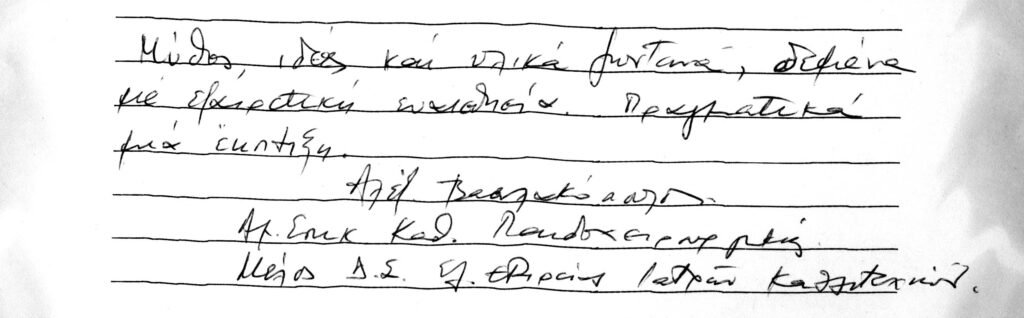 Μύθος, ιδέες και υλικά ζωντανά, δεμένα
με εξαιρετική ευαισθησία. Πραγματικά
μιά έκπληξη.
Αλέξ
Αν. Επικ Καθ. Παιδοχειρουργικής
Μέλος Δ.Σ. Ελ. Εταιρείας Ιατρών Καλλιτεχνών.